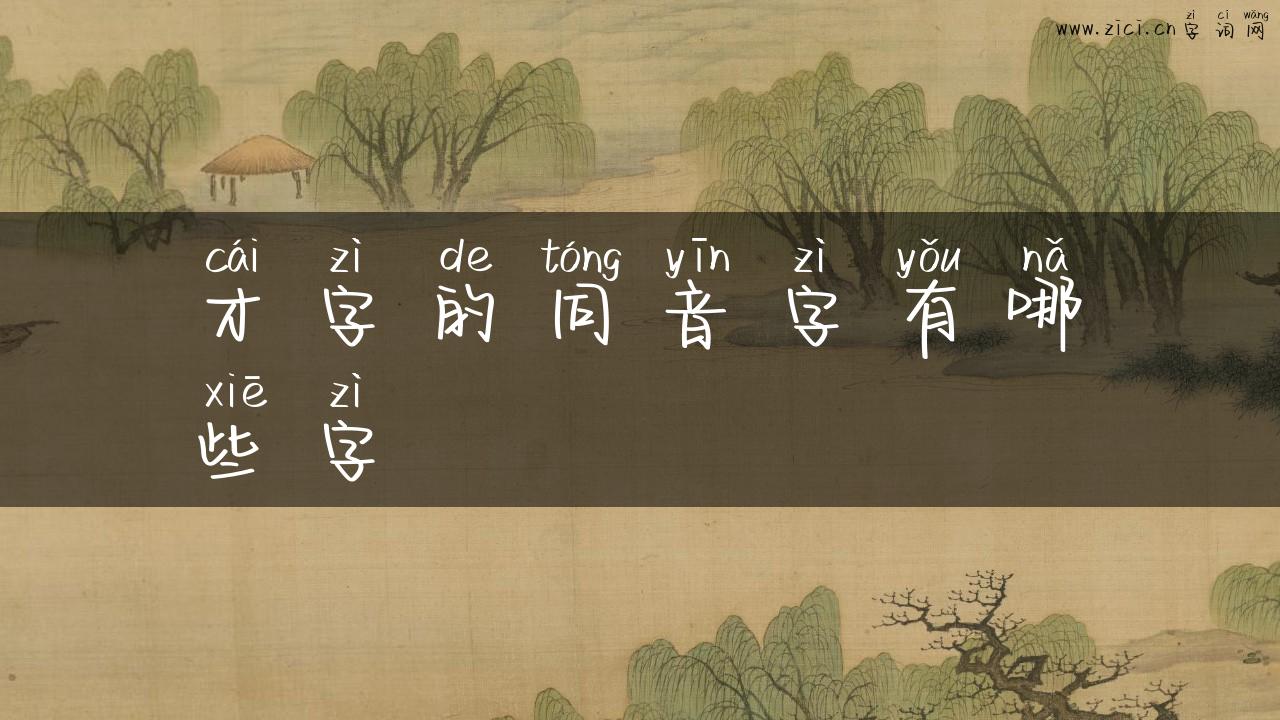 zì cí wǎng
www.zici.cn 字 词 网
cái zì de tóng yīn zì yǒu nǎ
才 字 的 同 音 字 有 哪
xiē zì
些 字